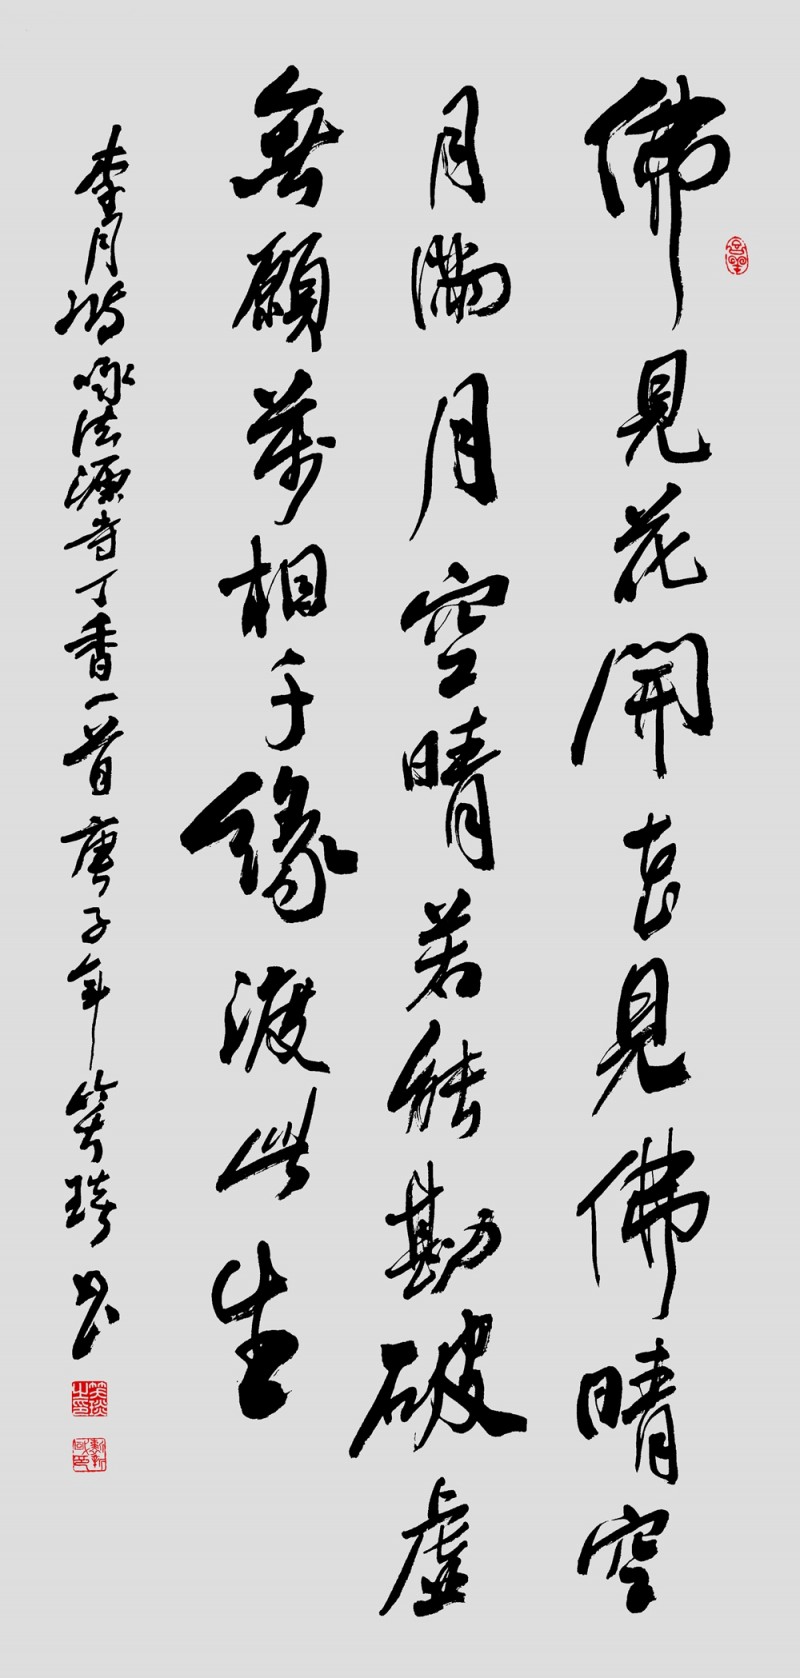 佛見花開花見佛晴空
月滿月空晴若能勘破虛
無願萬相千緣渡此生
李月洪啄法源寺丁香一首庚子年笑琦書